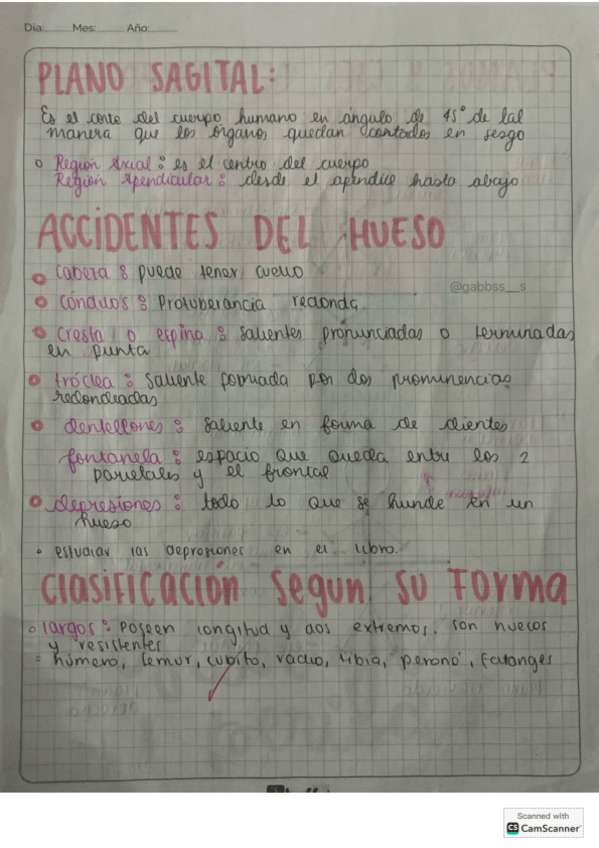 Día: Mes: Año:
PLANO SAGITAL:
Es el corte del cuerpo humano en ángulo de 45° de tal
manera que los órganos quedan cortados en sesgo
Región Axial : es el centro del cuerpo
Región Apendicular : desde el apéndice hasta abajo
ACCIDENTES DEL HUESO
cabeza : puede tener cuello
@gabbss__s
cóndulos : Protuberancia redonda
Cresta o espina : salientes pronunciadas o terminadas
en punta
tróclea : saliente formada por dos prominencias
redondeadas
dentellones : saliente en forma de dientes
fontanela : espacio que queda entre los 2
parietales y el frontal
depresiones : todo lo que se hunde en un
hueso
• estudiar las depresiones en el libro.
Clasificación Segun Su Forma
largos : Poseen longitud y dos extremos. son huecos
y resistentes
= húmero, femur, cubito, radio, tibia, peroné, falanges
Scanned with
CS CamScanner